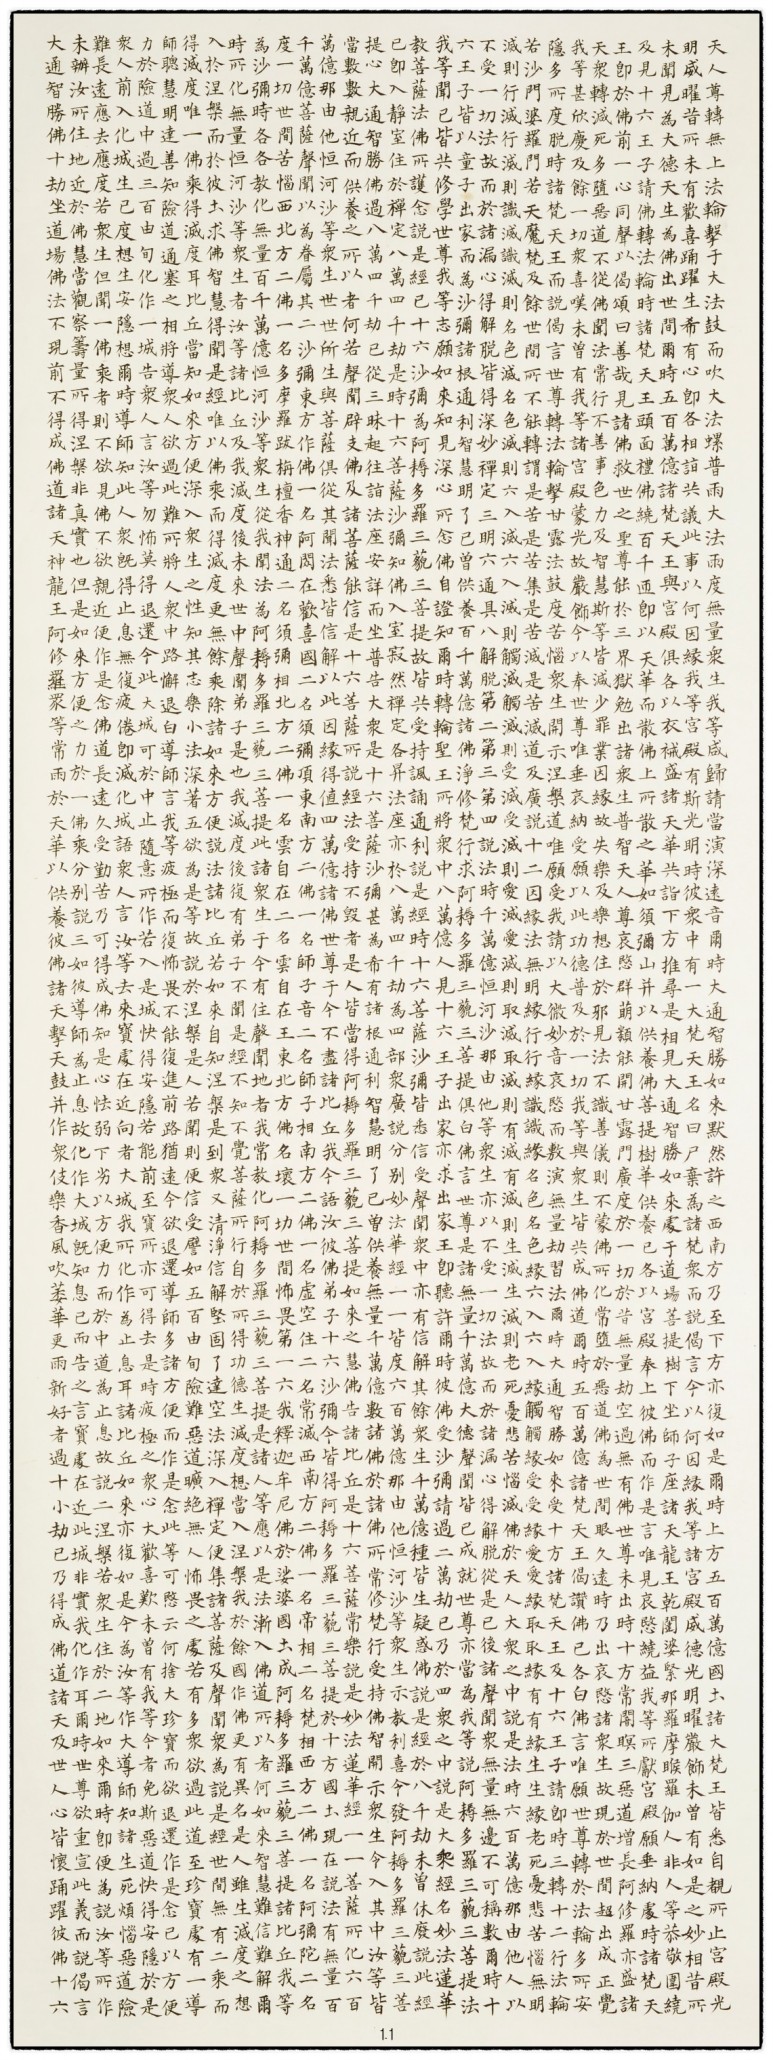 天人尊轉無上法輪擊于大法鼓而吹大法螺普雨大法雨度無量眾生我等咸歸請當演深遠音爾時大通智勝如來默然許之西南方乃至下方亦復如是爾時上方五百萬億國土諸大梵王皆悉自覩所止宮殿光
明威曜昔所未有歡喜踊躍生希有心即各相詣共議此事以何因緣我等宮殿有斯光明時彼眾中有一大梵天王名曰尸棄為諸梵眾而說偈言今以何因緣我等諸宮殿威德光明曜嚴飾未曾有如是之妙相昔所
未聞見為大德天生為佛出世間爾時五百萬億諸梵天王與宮殿俱各以衣裓盛諸天華共詣下方推尋是相見大通智勝如來處于道場菩提樹下坐師子座諸天龍王乾闥婆緊那羅摩睺羅伽人非人等恭敬圍繞
及見十六王子請佛轉法輪時諸梵天王頭面禮佛繞百千匝即以天華而散佛上所散之華如須彌山并以供養佛菩提樹華供養已各以宮殿奉上彼佛而作是言唯見哀愍饒益我等所獻宮殿願垂納處時諸梵天
王即於佛前一心同聲以偈頌曰善哉見諸佛救世之聖尊能於三界獄勉出諸眾生普智天人尊哀愍群萌類能開甘露門廣度於一切於昔無量劫空過無有佛世尊未出時十方常闇暝三惡道增長阿修羅亦盛諸
天眾轉減死多墮惡道不從佛聞法常行不善事色力及智慧斯等皆減少罪業因緣故失樂及樂想住於邪見法不識善儀則不蒙佛所化常墮於惡道佛為世間眼久遠時乃出哀愍諸眾生故現於世間超出成正覺
我等甚欣慶及餘一切眾喜嘆未曾有我等諸宮殿蒙光故嚴飾今以奉世尊唯垂哀納受願以此功德普及於一切我等與眾生皆共成佛道爾時五百萬億諸梵天王偈讚佛已各白佛言唯願世尊轉於法輪多所安
隱多所度脫時諸梵天王而說偈言世尊轉法輪擊甘露法鼓度苦惱眾生開示涅槃道唯願受我請以大微妙音哀愍而敷演無量劫習法爾時大通智勝如來受十方諸梵天王及十六王子請即時三轉十二行法輪
若沙門婆羅門若天魔梵及餘世間所不能轉謂是苦是苦集是苦滅是苦滅道及廣說十二因緣法無明緣行行緣識識緣名色名色緣六入六入緣觸觸緣受受緣愛愛緣取取緣有有緣生生緣老死憂悲苦惱無明
滅則行滅行滅則識滅識滅則名色滅名色滅則六入滅六入滅則觸滅觸滅則受滅受滅則愛滅愛滅則取滅取滅則有滅有滅則生滅生滅則老死憂悲苦惱滅佛於天人大眾之中說是法時六百萬億那由他人以
不受一切法故而於諸漏心得解脫皆得深妙禪定三明六通具八解脫第二第三第四說法時千萬億恒河沙那由他等眾生亦以不受一切法故而於諸漏心得解脫從是已後諸聲聞眾無量無邊不可稱數爾時十
六王子皆以童子出家而為沙彌諸根通利智慧明了已曾供養百千萬億諸佛淨修梵行求阿耨多羅三藐三菩提俱白佛言世尊是諸無量千萬億大德聲聞皆已成就世尊亦當為我等說阿耨多羅三藐三菩提法
我等聞已皆共修學世尊我等志願如來知見深心所念佛自證知爾時轉輪聖王所將眾中八萬億人見十六王子出家亦求出家王即聽許爾時彼佛受沙彌請過二萬劫已乃於四眾之中說是大乘經名妙法蓮華
教菩薩法佛所護念說是經已十六沙彌為阿耨多羅三藐三菩提故皆共受持諷誦通利說是經時十六菩薩沙彌皆悉信受聲聞眾中亦有信解其餘眾生千萬億種皆生疑惑佛說是經於八千劫未曾休廢說此經
已即入靜室住於禪定八萬四千劫是時十六菩薩沙彌知佛入室寂然禪定各昇法座亦於八萬四千劫為四部眾廣說分別妙法華經一一皆度六百萬億那由他恒河沙等眾生示教利喜令發阿耨多羅三藐三菩
提心大通智勝佛過八萬四千劫已從三昧起往詣法座安詳而坐普告大眾是十六菩薩沙彌甚為希有諸根通利智慧明了已曾供養無量千萬億數諸佛於諸佛所常修梵行受持佛智開示眾生令入其中汝等皆
當數數親近而供養之所以者何若聲聞辟支佛及諸菩薩能信是十六菩薩所說經法受持不毀者是人皆當得阿耨多羅三藐三菩提如來之慧佛告諸比丘是十六菩薩常樂說是妙法蓮華經一一菩薩所化六百
萬億那由他恒河沙等眾生世世所生與菩薩俱從其聞法悉皆信解以此因緣得值四萬億諸佛世尊于今不盡諸比丘我今語汝彼佛弟子十六沙彌今皆得阿耨多羅三藐三菩提於十方國土現在說法有無量百
千萬億菩薩聲聞以為眷屬其二沙彌東方作佛一名阿閦在歡喜國二名須彌頂東南方二佛一名師子音二名師子相南方二佛一名虛空住二名常滅西南方二佛一名帝相二名梵相西方二佛一名阿彌陀二名
度一切世間苦惱西北方二佛一名多摩羅跋栴檀香神通二名須彌相北方二佛一名雲自在二名雲自在王東北方佛名壞一切世間怖畏第十六我釋迦牟尼佛於娑婆國土成阿耨多羅三藐三菩提諸比丘我等
為沙彌時各各教化無量百千萬億恒河沙等眾生從我聞法為阿耨多羅三藐三菩提此諸眾生于今有住聲聞地者我常教化阿耨多羅三藐三菩提是諸人等應以是法漸入佛道所以者何如來智慧難信難解爾
時所化無量恒河沙等眾生者汝等諸比丘及我滅度後未來世中聲聞弟子是也我滅度後復有弟子不聞是經不知不覺菩薩所行自於所得功德生滅度想當入涅槃我於餘國作佛更有異名是人雖生滅度之想
入於涅槃而於彼土求佛智慧得聞是經唯以佛乘而得滅度更無餘乘除諸如來方便說法諸比丘若如來自知涅槃時到眾又清淨信解堅固了達空法深入禪定便集諸菩薩及聲聞眾為說是經世間無有二乘而
得滅度唯一佛乘得滅度耳比丘當知如來方便深入眾生之性知其志樂小法深著五欲為是等故說於涅槃是人若聞則便信受譬如五百由旬險難惡道曠絕無人怖畏之處若有多眾欲過此道至珍寶處有一導
師聰慧明達善知險道通塞之相將導眾人欲過此難所將人眾中路懈退白導師言我等疲極而復怖畏不能復進前路猶遠今欲退還導師多諸方便而作是念此等可愍云何捨大珍寶而欲退還作是念已以方便
力於險道中過三百由旬化作一城告眾人言汝等勿怖莫得退還今此大城可於中止隨意所作若入是城快得安隱若能前至寶所亦可得去是時疲極之眾心大歡喜歎未曾有我等今者免斯惡道快得安隱於是
眾人前入化城生已度想生安隱想爾時導師知此人眾既得止息無復疲倦即滅化城語眾人言汝等去來寶處在近向者大城我所化作為止息耳諸比丘如來亦復如是今為汝等作大導師知諸生死煩惱惡道險
難長遠應去應度若眾生但聞一佛乘者則不欲見佛不欲親近便作是念佛道長遠久受勤苦乃可得成佛知是心怯弱下劣以方便力而於中道為止息故說二涅槃若眾生住於二地如來爾時即便為說汝等所作
未辦汝所住地近於佛慧當觀察籌量所得涅槃非真實也但是如來方便之力於一佛乘分別說三如彼導師為止息故化作大城既知息已而告之言寶處在近此城非實我化作耳爾時世尊欲重宣此義而說偈言
大通智勝佛十劫坐道場佛法不現前不得成佛道諸天神龍王阿修羅眾等常雨於天華以供養彼佛諸天擊天鼓并作眾伎樂香風吹萎華更雨新好者過十小劫已乃得成佛道諸天及世人心皆懷踊躍彼佛十六
1.1